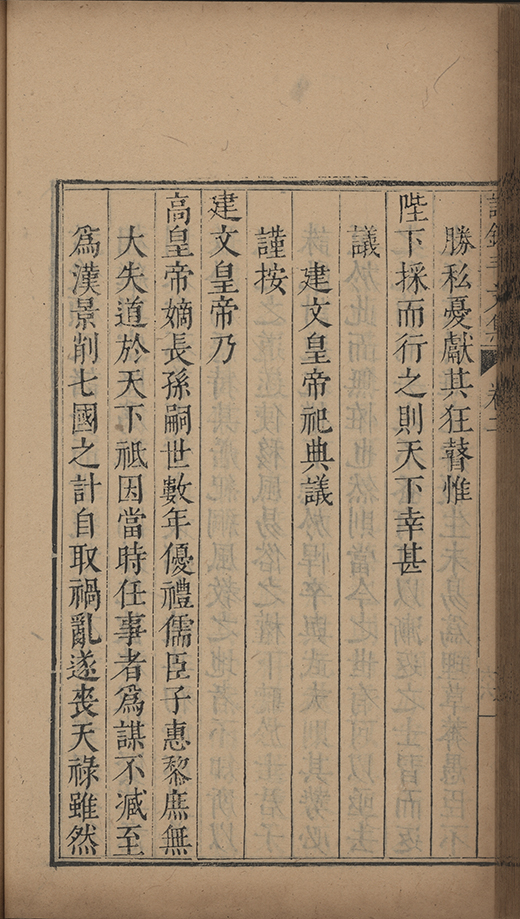 勝私憂獻其狂瞽惟
陛下採而行之則天下幸甚
議
建文皇帝祀典議
謹按
建文皇帝乃
高皇帝嫡長孫嗣世數年優禮儒臣子惠黎庶無
大失道於天下祗因當時任事者為謀不減至
為漢景削七國之計自取禍亂遂喪天祿雖然